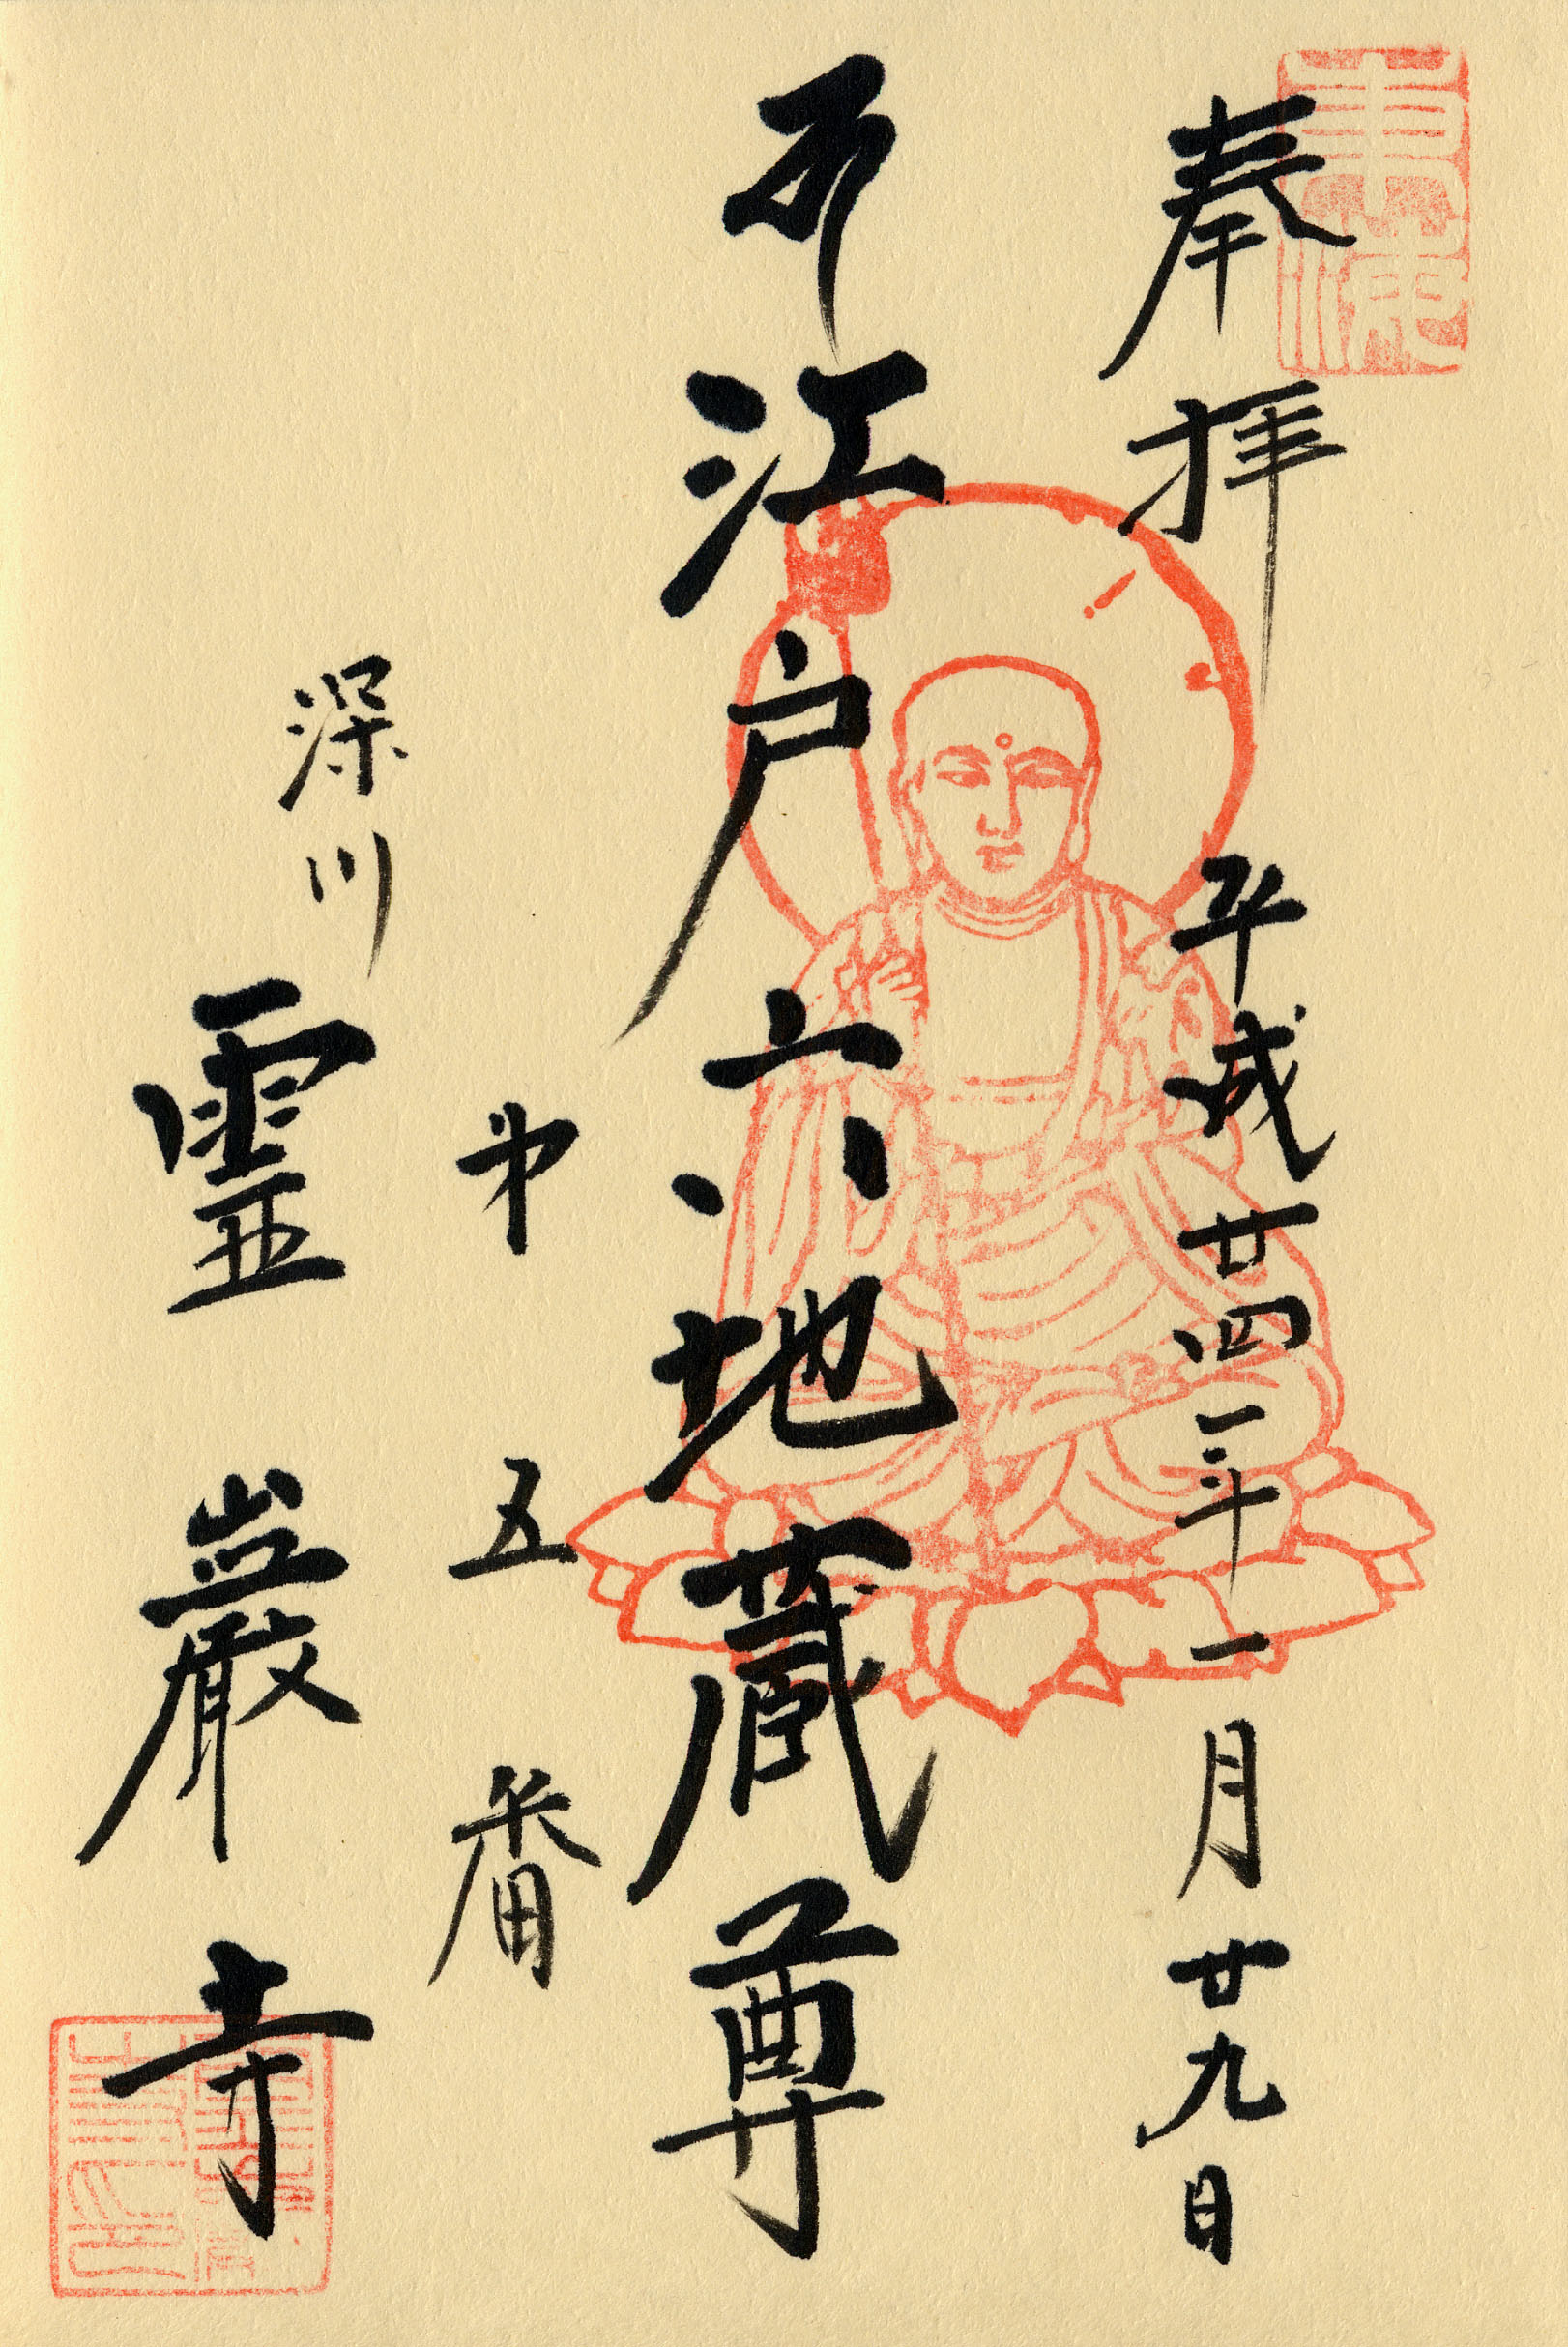 奉拝 平成廿四年一月廿九日
江戸六地蔵尊
第五番
深川 霊巌寺